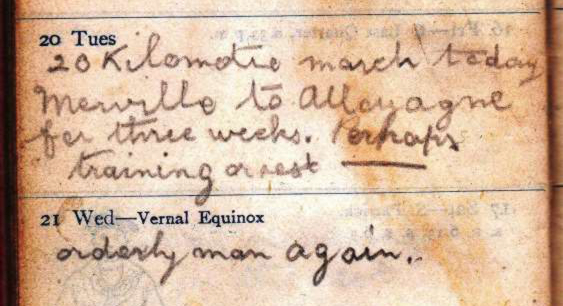 20 Tues
20 Kilometre march today
Merville to Allouagne
for three weeks. Perhaps
training or rest
21 Wed—Vernal Equinox
orderly man again.